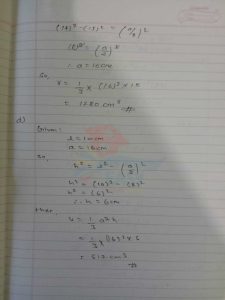 (17)² - (15)² = (a/2)²
(8)² = (a/2)²
∴ a = 16cm
So,
v = 1/3 × (16)² × 15
= 1280 cm³
d)
Given:
l = 10cm
a = 16cm
so,
h² = l² - (a/2)²
h² = (10)² - (8)²
h² = (6)²
∴ h = 6cm
then,
v = 1/3 a²h
= 1/3 × (16)² × 6
= 512 cm³